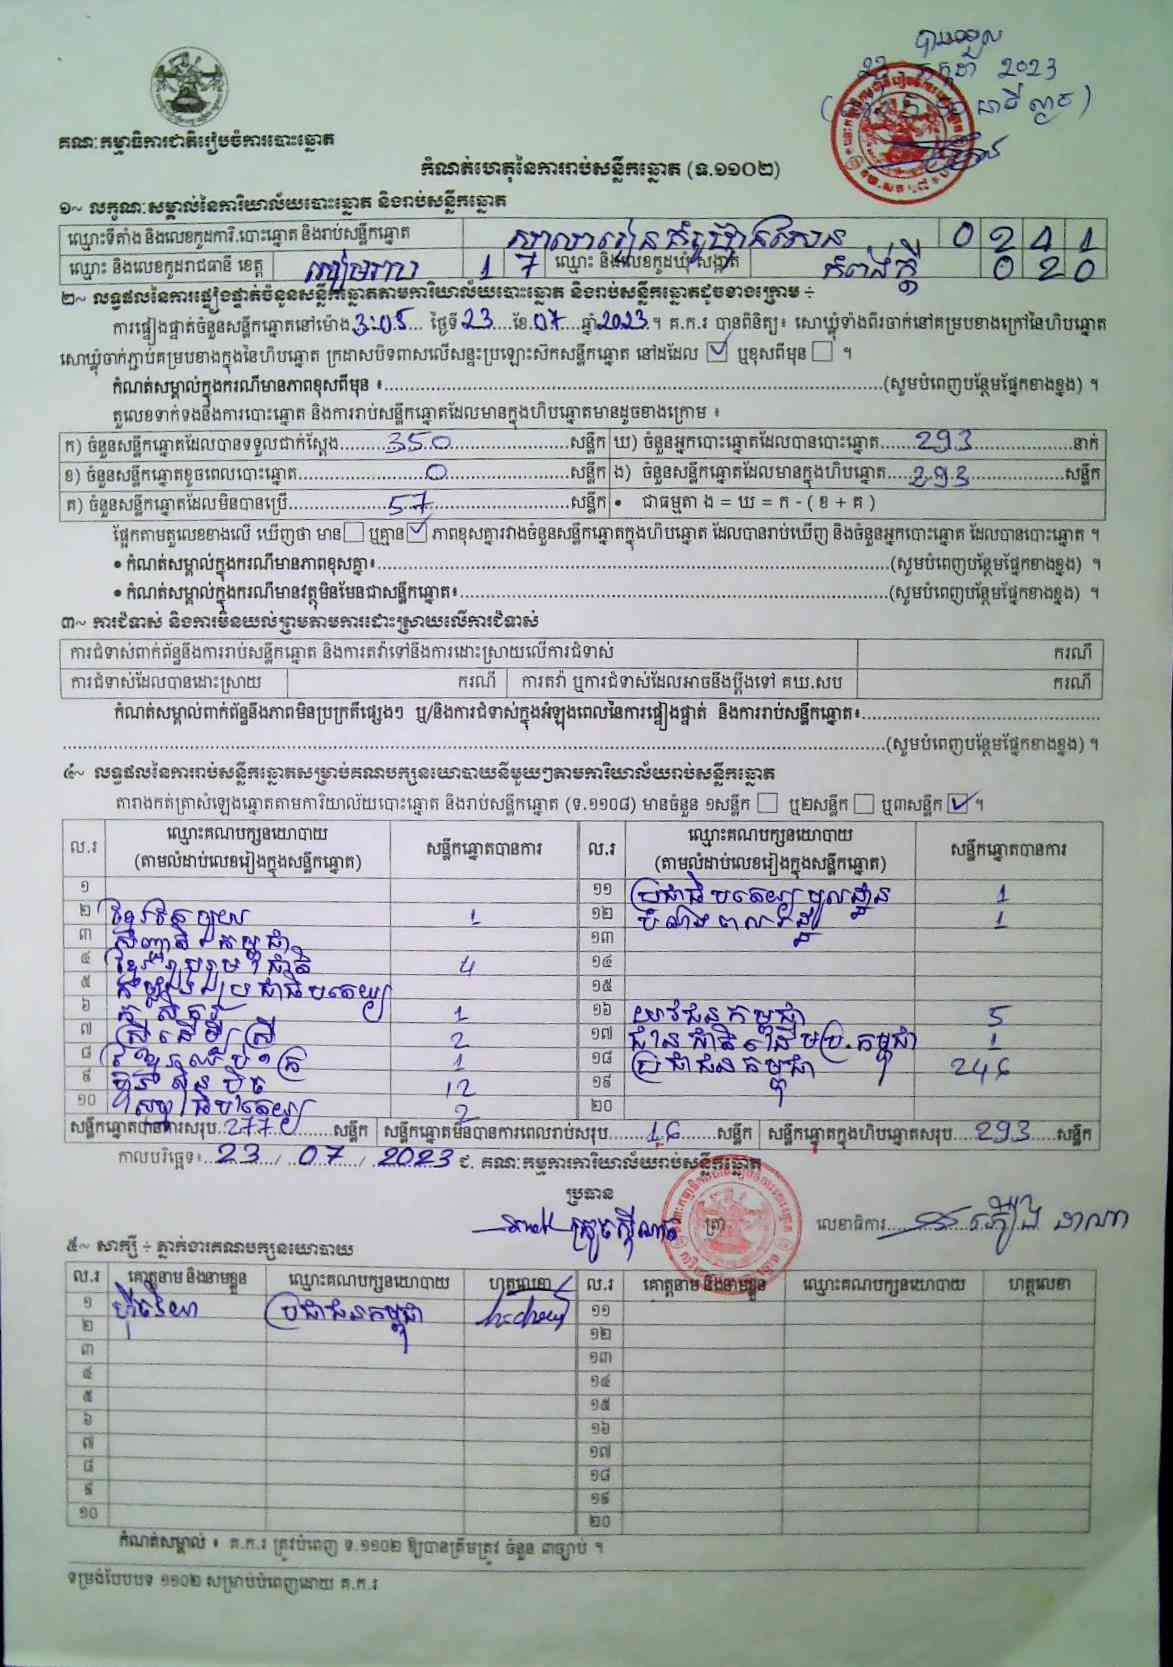 បានទទួល
23 កក្កដា 2023
គណៈកម្មាធិការជាតិរៀបចំការបោះឆ្នោត
កំណត់ហេតុនៃការរាប់សន្លឹកឆ្នោត (ទ.១១០២)
១~ លក្ខណៈសម្គាល់នៃការិយាល័យបោះឆ្នោត និងរាប់សន្លឹកឆ្នោត
ឈ្មោះទីតាំង និងលេខកូដការិ.បោះឆ្នោត និងរាប់សន្លឹកឆ្នោត សាលារៀន ហ៊ុនសែន 0 2 1 1
ឈ្មោះ និងលេខកូដរាជធានី ខេត្ត សៀមរាប 1 7 ឈ្មោះ និងលេខកូដឃុំ សង្កាត់ កំពង់ក្ដី 0 2 0
២~ លទ្ធផលនៃការផ្ទៀងផ្ទាត់ចំនួនសន្លឹកឆ្នោតតាមការិយាល័យបោះឆ្នោត និងរាប់សន្លឹកឆ្នោតដូចខាងក្រោម ÷
ការផ្ទៀងផ្ទាត់ចំនួនសន្លឹកឆ្នោតនៅម៉ោង 3:05 ថ្ងៃទី 23 ខែ 07 ឆ្នាំ 2023 ។ គ.ក.រ បានពិនិត្យ៖ សោឃ្លុំទាំងពីរចាក់នៅគម្របខាងក្រៅនៃហិបឆ្នោត
សោឃ្លុំចាក់ភ្ជាប់គម្របខាងក្នុងនៃហិបឆ្នោត ក្រដាសបិទពាសលើសន្ទះប្រឡោះស៊កសន្លឹកឆ្នោត នៅដដែល ☑ ឬខុសពីមុន ☐ ។
កំណត់សម្គាល់ក្នុងករណីមានភាពខុសពីមុន ៖ (សូមបំពេញបន្ថែមផ្នែកខាងខ្នង) ។
តួលេខទាក់ទងនឹងការបោះឆ្នោត និងការរាប់សន្លឹកឆ្នោតដែលមានក្នុងហិបឆ្នោតមានដូចខាងក្រោម ៖
ក) ចំនួនសន្លឹកឆ្នោតដែលបានទទួលជាក់ស្តែង 350 សន្លឹក ឃ) ចំនួនអ្នកបោះឆ្នោតដែលបានបោះឆ្នោត 293 នាក់
ខ) ចំនួនសន្លឹកឆ្នោតខូចពេលបោះឆ្នោត 0 សន្លឹក ង) ចំនួនសន្លឹកឆ្នោតដែលមានក្នុងហិបឆ្នោត 293 សន្លឹក
គ) ចំនួនសន្លឹកឆ្នោតដែលមិនបានប្រើ 57 សន្លឹក • ជាធម្មតា ង = ឃ = ក - ( ខ + គ )
ផ្អែកតាមតួលេខខាងលើ ឃើញថា មាន ☐ ឬគ្មាន ☑ ភាពខុសគ្នារវាងចំនួនសន្លឹកឆ្នោតក្នុងហិបឆ្នោត ដែលបានរាប់ឃើញ និងចំនួនអ្នកបោះឆ្នោត ដែលបានបោះឆ្នោត ។
• កំណត់សម្គាល់ក្នុងករណីមានភាពខុសគ្នា៖ (សូមបំពេញបន្ថែមផ្នែកខាងខ្នង) ។
• កំណត់សម្គាល់ក្នុងករណីមានវត្ថុមិនមែនជាសន្លឹកឆ្នោត៖ (សូមបំពេញបន្ថែមផ្នែកខាងខ្នង) ។
៣~ ការជំទាស់ និងការមិនយល់ព្រមតាមការដោះស្រាយលើការជំទាស់
ការជំទាស់ពាក់ព័ន្ធនឹងការរាប់សន្លឹកឆ្នោត និងការតវ៉ាទៅនឹងការដោះស្រាយលើការជំទាស់ ករណី
ការជំទាស់ដែលបានដោះស្រាយ ករណី ការតវ៉ា ឬការជំទាស់ដែលអាចនឹងប្តឹងទៅ គឃ.សប ករណី
កំណត់សម្គាល់ពាក់ព័ន្ធនឹងភាពមិនប្រក្រតីផ្សេងៗ ឬ/និងការជំទាស់ក្នុងអំឡុងពេលនៃការផ្ទៀងផ្ទាត់ និងការរាប់សន្លឹកឆ្នោត៖
(សូមបំពេញបន្ថែមផ្នែកខាងខ្នង) ។
៤~ លទ្ធផលនៃការរាប់សន្លឹកឆ្នោតសម្រាប់គណបក្សនយោបាយនីមួយៗតាមការិយាល័យរាប់សន្លឹកឆ្នោត
តារាងកត់ត្រាសំឡេងឆ្នោតតាមការិយាល័យបោះឆ្នោត និងរាប់សន្លឹកឆ្នោត (ទ.១១០៨) មានចំនួន ១សន្លឹក ☐ ឬ២សន្លឹក ☐ ឬ៣សន្លឹក ☑ ។
ល.រ ឈ្មោះគណបក្សនយោបាយ (តាមលំដាប់លេខរៀងក្នុងសន្លឹកឆ្នោត) សន្លឹកឆ្នោតបានការ ល.រ ឈ្មោះគណបក្សនយោបាយ (តាមលំដាប់លេខរៀងក្នុងសន្លឹកឆ្នោត) សន្លឹកឆ្នោតបានការ
១ ១១ ប្រជាធិបតេយ្យមូលដ្ឋាន 1
២ ខ្មែរឈប់ក្រ 1 ១២ 1
៣ សញ្ជាតិកម្ពុជា ១៣
៤ ខ្មែររួបរួមជាតិ 4 ១៤
៥ កម្លាំងប្រជាធិបតេយ្យ ១៥
៦ កសិករ 1 ១៦ យុវជនកម្ពុជា 5
៧ ស្រ្តីដើម្បីស្រ្តី 2 ១៧ 1
៨ 1 ១៨ ប្រជាជនកម្ពុជា 246
៩ ហ៊្វុនស៊ិនប៉ិច 12 ១៩
១០ ធិបតេយ្យ 2 ២០
សន្លឹកឆ្នោតបានការសរុប 277 សន្លឹក សន្លឹកឆ្នោតមិនបានការពេលរាប់សរុប 16 សន្លឹក សន្លឹកឆ្នោតក្នុងហិបឆ្នោតសរុប 293 សន្លឹក
កាលបរិច្ឆេទ៖ 23 / 07 / 2023 ៩. គណៈកម្មការការិយាល័យរាប់សន្លឹកឆ្នោត
ប្រធាន
ត្រា លេខាធិការ
៥~ សាក្សី ÷ ភ្នាក់ងារគណបក្សនយោបាយ
ល.រ គោត្តនាម និងនាមខ្លួន ឈ្មោះគណបក្សនយោបាយ ហត្ថលេខា ល.រ គោត្តនាម និងនាមខ្លួន ឈ្មោះគណបក្សនយោបាយ ហត្ថលេខា
១ ប្រជាជនកម្ពុជា ១១
២ ១២
៣ ១៣
៤ ១៤
៥ ១៥
៦ ១៦
៧ ១៧
៨ ១៨
៩ ១៩
១០ ២០
កំណត់សម្គាល់ ៖ គ.ក.រ ត្រូវបំពេញ ទ.១១០២ ឱ្យបានត្រឹមត្រូវ ចំនួន ៣ច្បាប់ ។
ទម្រង់បែបបទ ១១០២ សម្រាប់បំពេញដោយ គ.ក.រ